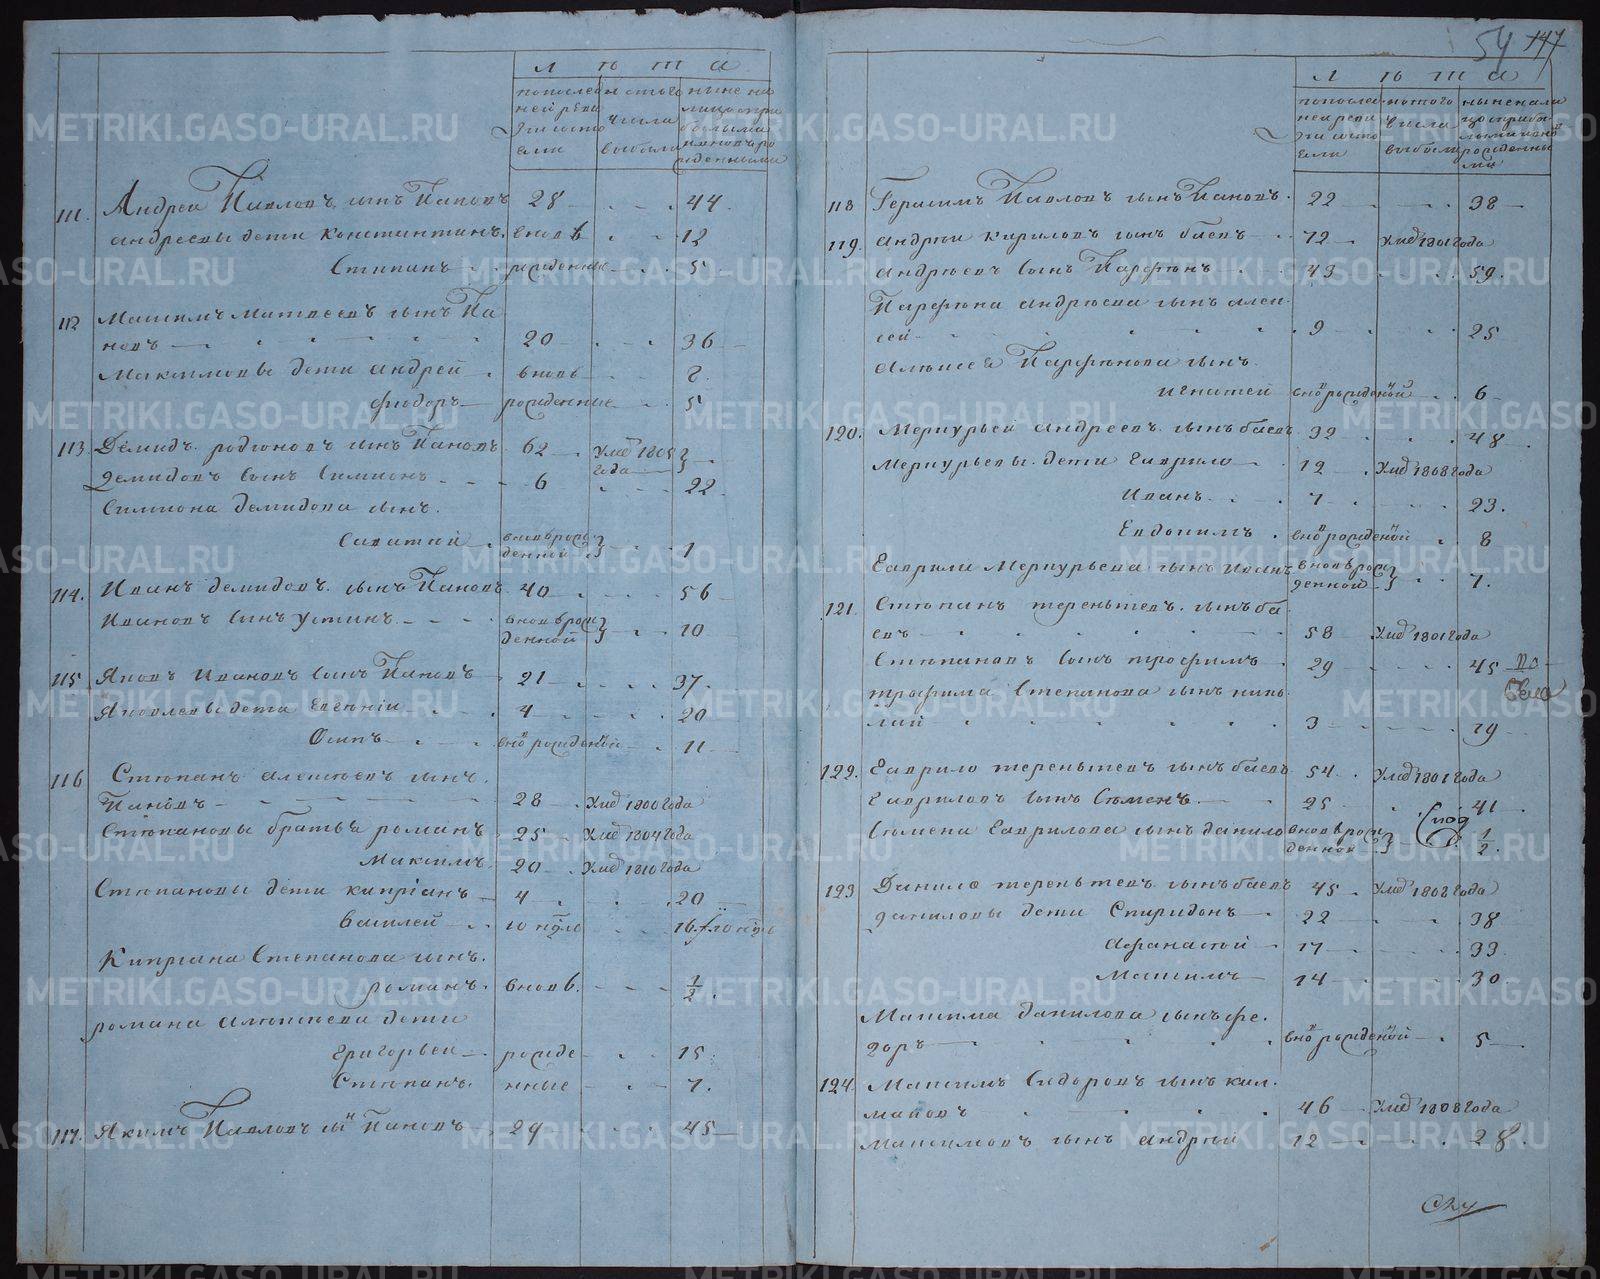 54 147
лѣта
по последней ревизии состояли
из того числа выбыли
ныне на лицо с прибылыми и вновь рожденными
111. Андреи Павловъ сынъ Пановъ 28 44
андреевы дети Константинъ вновь 12
Степанъ рожденные 5
112 Максимъ Матвеевъ сынъ Па
новъ 20 36
Максимовы дети андрей вновь 8
фиодоръ рожденные 5
113 Демидъ родионовъ сынъ Пановъ 62 Умѣ 1805 года
Демидовъ сынъ Симионъ 6 22
Симиона демидова сынъ
Саватий вновь рожденной 1
114. Иванъ демидовъ сынъ Пановъ 40 56
Ивановъ сынъ Устинъ вновь рожденной 10
115 Яковъ Ивановъ сынъ Пановъ 21 37
Яковлевы дети Евгѣнiи 4 20
Осипъ вно рожденый 11
116 Стѣпанъ алексѣевъ сынъ
Пановъ 28 Умѣ 1800 года
Стѣпановы братья романъ 25 Умѣ 1804 года
Максимъ 20 Умѣ 1810 года
Стѣпановы дети киприанъ 4 20
Василей 10 нѣдъ 16
Киприана Степанова сынъ
романъ вновь 1/2
романа алексѣева дети
Григорьеи рожде 15
Стѣпанъ нные 7
117. Якимъ Павловъ сы Пановъ 29 45
лѣта
по последней ревизии состояли
из того числа выбыли
ныне на лицо с прибылыми и вновь рожденными
118 Герасимъ Павловъ сынъ Пановъ 22 38
119. андрѣи кириловъ сынъ баевъ 72 Умѣ 1801 года
андрѣевъ сынъ Парфѣнъ 43 59
Парфѣна андрѣева сынъ алек
сей 9 25
алѣксея Парфѣнова сынъ
игнатей вно рожденый 6
120. Меркурьей андреевъ сынъ баевъ 32 48
Меркурьевы дети гаврило 12 Умѣ 1808 года
Иванъ 7 23
Евдокимъ вно рожденой 8
Гаврила Меркурьева сынъ иванъ вновь рожденной 7
121. Стѣпанъ терентьевъ сынъ ба
евъ 58 Умѣ 1801 года
Стѣпановъ сынъ трофимъ 29 45
трофима Степанова сынъ нико
лай 3 19
122. Гаврило терентьевъ сынъ баевъ 54 Умѣ 1801 года
Гавриловъ сынъ Сѣменъ 25 41
Сѣмена Гаврилова сынъ данило вновь рожденной 1/2 год
123 Данило терентьевъ сынъ баевъ 45 Умѣ 1808 года
даниловы дети Спиридонъ 22 38
афанасѣй 17 33
Максимъ 14 30
Максима данилова сынъ фе
доръ вно рожденый 5
124. Максимъ Сидоровъ сынъ кал
маковъ 46 Умѣ 1808 года
Максимовъ сынъ андрѣй 12 28
METRIKI.GASO-URAL.RU